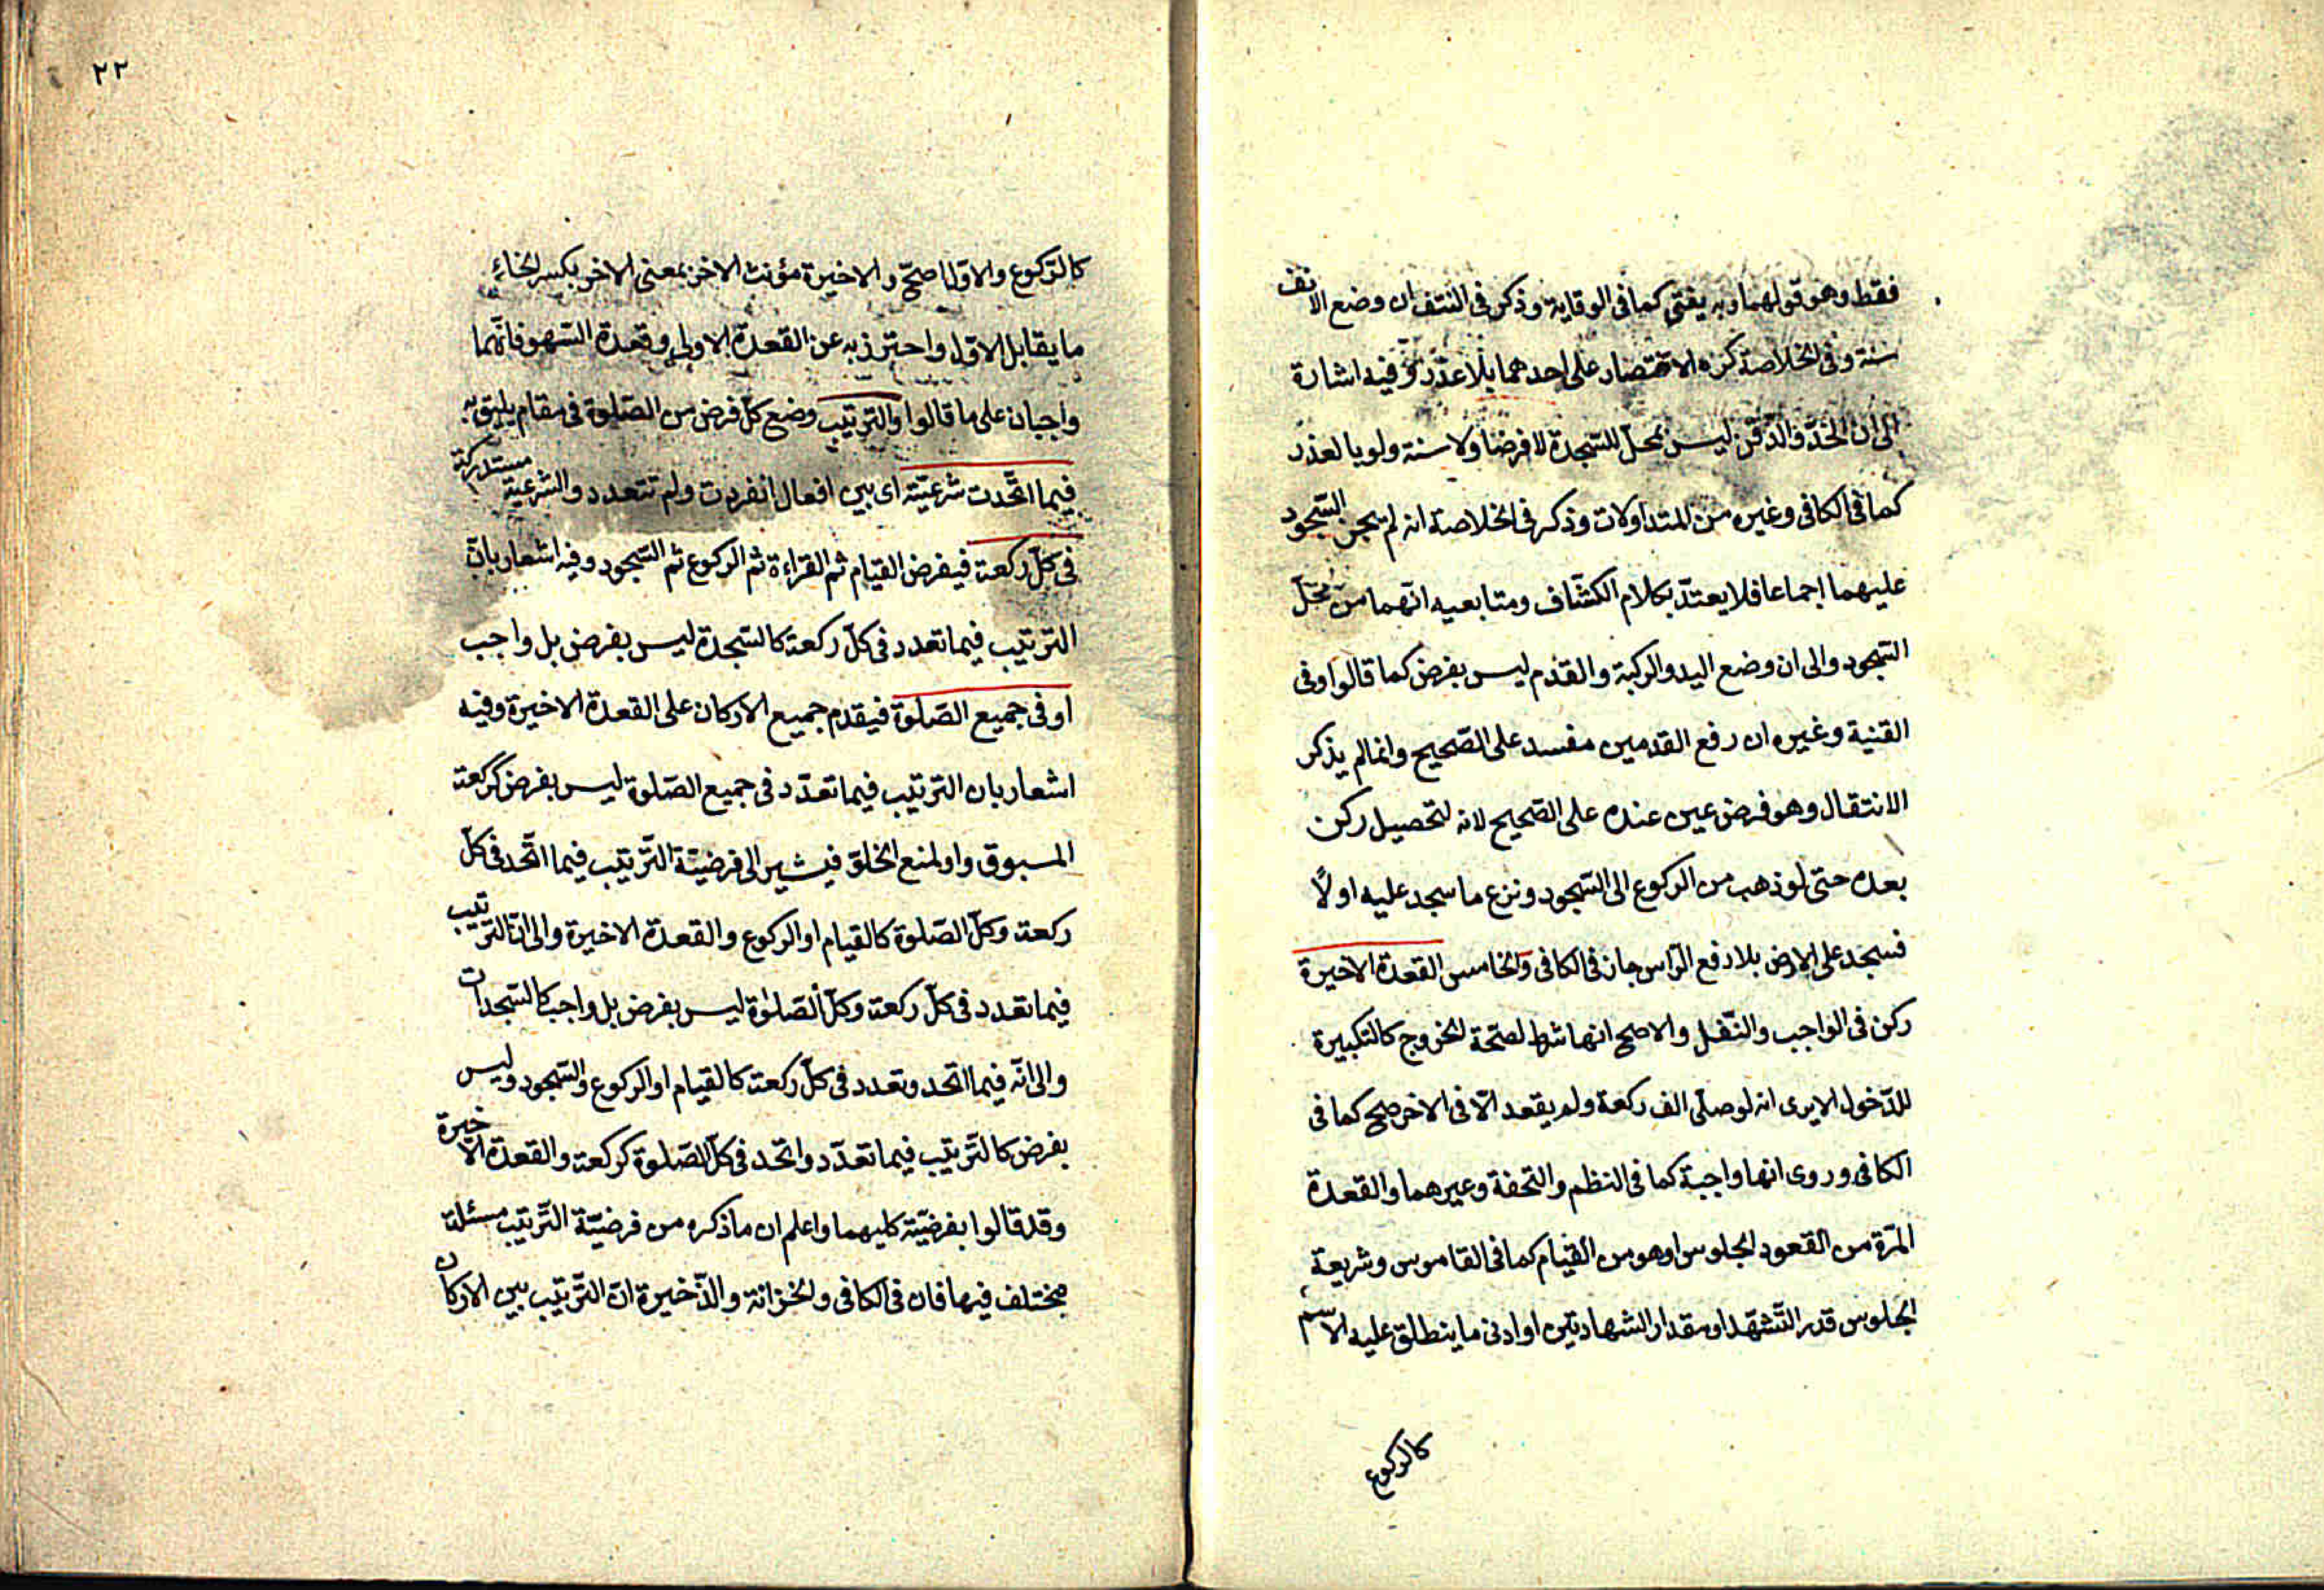 فقط وهو قولهما وبه يفتى كما فى الوقاية وذكر فى النتف ان وضع الانف
سنة وفى الخلاصة كره الاقتصار على احدهما بلا عذر وفيه اشارة
الى ان الخد والذقن ليس بمحل للسجدة لا فرضا ولا سنة ولو بالعذر
كما فى الكافى وغيره من المتداولات وذكر فى الخلاصة انه لم يجز السجود
عليهما اجماعا فلا يعتد بكلام الكشاف ومتابعيه انهما من محل
السجود والى ان وضع اليد والركبة والقدم ليس بفرض كما قالوا وفى
القنية وغيره ان رفع القدمين مفسد على الصحيح وانما لم يذكر
الانتقال وهو فرض عين عنده على الصحيح لانه لتحصيل ركن
بعده حتى لو ذهب من الركوع الى السجود ونزع ما سجد عليه اولًا
فسجد على الارض بلا رفع الرأس جاز فى الكافى والخامس القعدة الاخيرة
ركن فى الواجب والنفل والاصح انها شرط لصحة الخروج كالتكبيرة
للدخول الا يرى انه لو صلى الف ركعة ولم يقعد الّا فى الاخر صح كما فى
الكافى وروى انها واجبة كما فى النظم والتحفة وغيرهما والقعدة
المرّة من القعود الجلوس او هو من القيام كما فى القاموس وشريعة
الجلوس قدر التشهّد او مقدار الشهادتين او ادنى ما ينطلق عليه الاسم
كالركوع
٢٢
كالرّكوع والاوّل اصحّ والاخيرة مؤنث الاخر بمعنى الاخر بكسر الخاء
ما يقابل الاوّل واحترز به عن القعدة الاولى وقعدة السّهو فانّهما
واجبان على ما قالوا والترتيب وضع كلّ فرض من الصّلوة فى مقام يليق به
فيما اتّحدت شرعيّته اى بين افعال انفردت ولم تتعدد والشرعية مستدركة
فى كلّ ركعة فيفرض القيام ثم القراءة ثم الركوع ثم السّجود وفيه اشعار بانّ
الترتيب فيما تعدد فى كلّ ركعة كالسّجدة ليس بفرض بل واجب
او فى جميع الصّلوة فيقدم جميع الاركان على القعدة الاخيرة وفيه
اشعار بان الترتيب فيما تعدّد فى جميع الصّلوة ليس بفرض كركعة
المسبوق واو لمنع الخلوّ فيشير الى فرضيّة التّرتيب فيما اتّحد فى كلّ
ركعة وكلّ الصّلوة كالقيام او الركوع والقعدة الاخيرة والى انّ التّرتيب
فيما تعدد فى كلّ ركعة وكلّ الصّلوة ليس بفرض بل واجب كالسّجدات
والى انّه فيما اتّحد وتعدد فى كلّ ركعة كالقيام او الركوع والسّجود وليس
بفرض كالتّرتيب فيما تعدّد واتحد فى كلّ الصّلوة كركعة والقعدة الاخيرة
وقد قالوا بفرضيّة كليهما واعلم ان ما ذكره من فرضيّة التّرتيب مسئلة
مختلف فيها فان فى الكافى والخزانة والذّخيرة انّ التّرتيب بين الاركان